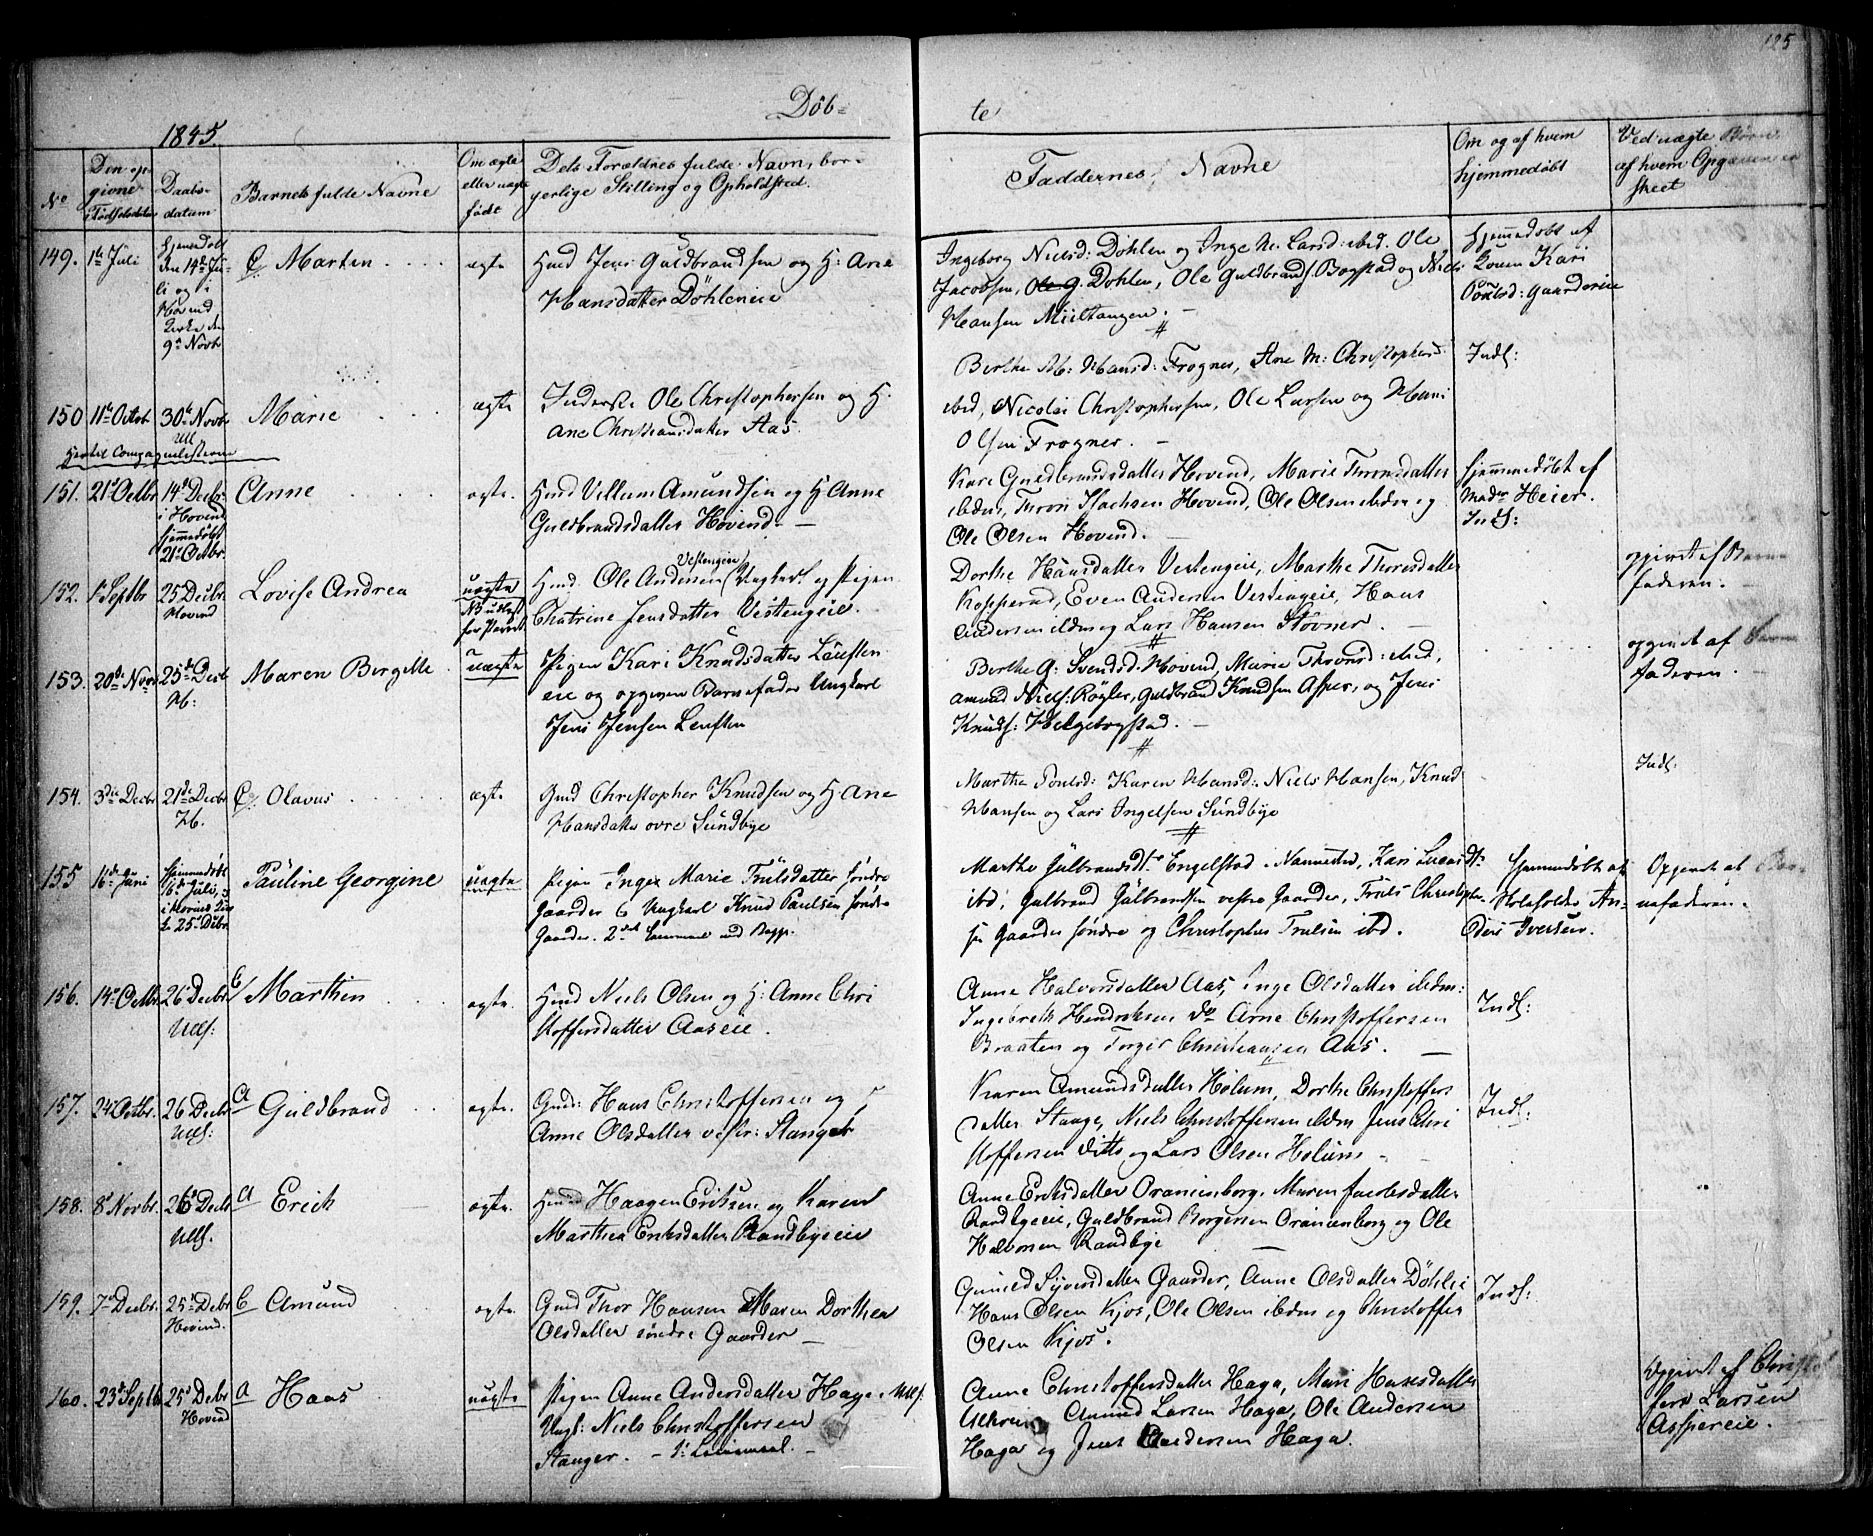 125
Döb- te
1845.
No
Den op-
givne
Fødselsdatum
Daabs-
datum
Barnets fulde Navne
Om ægte
eller uægte
født
Dets Forældres fulde Navn, bor-
gerlige Stilling og Opholdsted.
Faddernes Navne
Om og af hvem
hjemmedøbt
Ved uægte Børn
af hvem Opgaven er
skeet
149. 1te Juli
Hjemmedøbt
den 14de Ju-
li og i
Hovind
Kirke den
9de Novbr
Martin
ægte
Hmd Jens Guldbrandsen og H: Ane
Hansdatter Döhleneie
Ingeborg Nielsd: Döhlen og Inge M: Larsd: ibid. Ole
Jacobsen, Döhlen, Ole Guldbrands. Bogstad og Niels
Hansen Miiltangen.
Hjemmedøbt af
Konen Kari
Povelsd: Gaardereie
150 11te Octbr 30te Novbr
Ull
Marie
ægte
Inderste Ole Christophersen og H.
Ane Christiansdatter Aas.
Berthe M: Hansd: Frogner, Ane M: Christophersd:
ibid, Nicolai Christophersen, Ole Larsen og Hans
Olsen Frogner.
Indf:
151. 21de Octbr 14de Decbr
i Hovind
hjemmedøbt
21de Octbr.
Anne
ægte.
Hmd Villum Amundsen og H Anne
Guldbrandsdatter Hovind.
Kari Guldbrandsdatter Hovind, Marie Thronsdatter
ibdm, Thron Isachsen Hovind, Ole Olsen ibdm og
Ole Olsen Hovind.
Hjemmedøbt af
Madm Heier.
Indf:
152. 1 Septbr 25 Decbr
Hovind
Lovise Andrea
uægte
Hmd Ole Andersen Vestengeie (Ungkarl og Pigen
Chatrine Jensdatter Vestengeie.
Dorthe Hansdatter Vestengeie, Marthe Thoresdatter
Kopperud, Even Andersen Vestengeie, Hans
Andersen ibdm og Lars Hansen Stovner.
opgivet af Barne
faderen.
153. 20de Novbr 25de Decbr
H:
Maren Bergitte
uægte
Pigen Kari Knudsdatter Leuften
eie og opgiven Barnefader Ungkarl
Jens Jensen Leuften
Berthe G: Svendsd. Hovind, Marie Thronsd: ibid,
Amund Niels: Røgler, Guldbrand Knudsen Asper, og Jens
Knuds: Helgebogstad.
opgivet af Barne
faderen.
154. 3die Decbr 21de Decbr
H.
Olavus
ægte
Gmd Christopher Knudsen og H Ane
Hansdatter ovre Sundbye
Marthe Povlsd: Karen Hansd: Niels Hansen, Knud
Hansen og Lars Ingelsen Sundbye
Indf:
155 16de Juni
Hjemmedøbt
16de Juli, og
i Hovind Kir-
ke 25de Decbr
Pauline Georgine
uægte
Pigen Inger Marie Trulsdatter søndre
Gaarder & Ungkarl Knud Paulsen søndre
Gaarder. 2det Leiermaal
Marthe Gulbrandsdtr Engelstad i Nannestad, Kari Lucasdtr
ibd, Gulbrand Gulbrandsen vestre Gaarder, Truls Christophe-
sen Gaarder søndre og Christopher Trulsen ibd.
Hjemmedøbt af
Kirkeholder An-
ders Iversen.
Opgivet af Bar-
nefaderen.
156. 14de Octbr. 26 Decbr
Ull:
Marthin
ægte.
Hmd Niels Olsen og H: Anne Chri
stoffersdatter Aaseie.
Anne Halvorsdatter Aas, Inge Olsdatter ibdm:
Ingebreth Hendriksen do Arne Christoffersen
Braaten og Torger Christiansen Aas.
Indf:
157. 24de Octbr. 26 Decbr
Ull:
Guldbrand
ægte.
Gmd: Hans Christoffersen og
Anne Olsdatter vestr: Stanger
Karen Amundsdatter Holum, Dorthe Christoffers
datter Stange, Niels Christoffersen ibdm Jens Chri
stoffersen ditto og Lars Olsen Holum
Indf:
158. 8de Novbr. 26de Decbr
Ull.
Erick
ægte.
Haagen Eriksen og Karen
Marthea Eriksdatter Randbyeeie
Anne Eriksdatter Oranienborg, Maren Jacobsdatter
Randbyeeie, Guldbrand Borgersen Oranienborg og Ole
Halvorsen Randbye
159. 7de Decbr. 25de Decbr
Hovind.
Amund
ægte.
Gmd Thor Hansen Maren Dorthea
Olsdatter søndre Gaarder
Gunild Syversdatter Gaarder, Anne Olsdatter Döhlei
Hans Olsen Kjos, Ole Olsen ibdm og Christoffer
Olsen Kjos.
Indf:
160. 23de Septbr 25de Decbr
Hovind
Haas
uægte
Pigen Anne Andersdatter Hage i Ullf.
Ungk: Niels Christoffersen
Stanger. 1: Leiermaal.
Anne Christoffersdatter Haga, Mari Hansdatter
Amund Larsen Haga, Ole Andersen
Haga og Jens Andersen Haga.
Opgivet af Christof
fers Larsen
Asspereie.